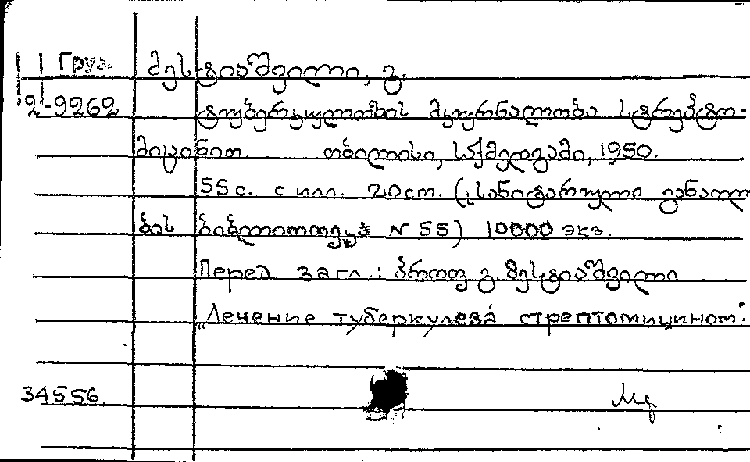 Груз. მესტიაშვილი, გ.
2-9262 ტუბერკულოზის მკურნალობა სტრეპტო-
მიცინით. თბილისი, საქმედგამი, 1950.
55 с. с илл. 20 см. (სანიტარული განათლ
ბის ბიბლიოთეკა № 55) 10000 экз.
Перед загл.: პროფ. გ. მესტიაშვილი
„Лечение туберкулеза стрептомицином".
34556.